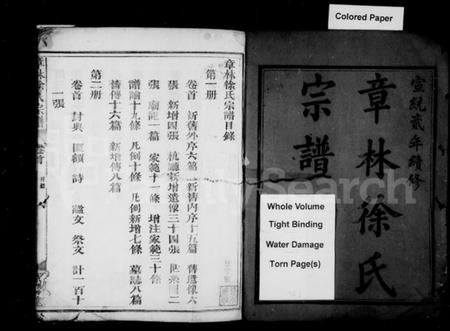 Colored Paper
宣統貳年續修
章林徐氏
宗譜
Whole Volume
Tight Binding
Water Damage
Torn Page(s)
章林徐氏宗譜目錄
第一册
卷首 新舊外序六篇 新舊内序十五篇 舊遺像六
張 新增四張 杭 新增遺像三十四張 世系圖二
張 廟記一篇 家範十一條 增注家範三十條
譜論十九條 凡例十條 凡例新增七條 墓誌八篇
舊傳十六篇 新增傳八篇
第二册
卷首 封典 匾額 詩 文 祭文 計一百十
一張
Search